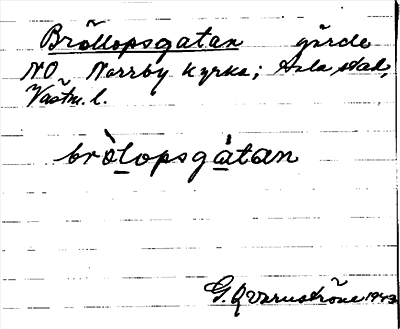 Bröllopsgatan gärde
NO Norrby kyrka; Sala stad,
Västm. l.
bròlopsgàtan
G. Qvarnström 1943